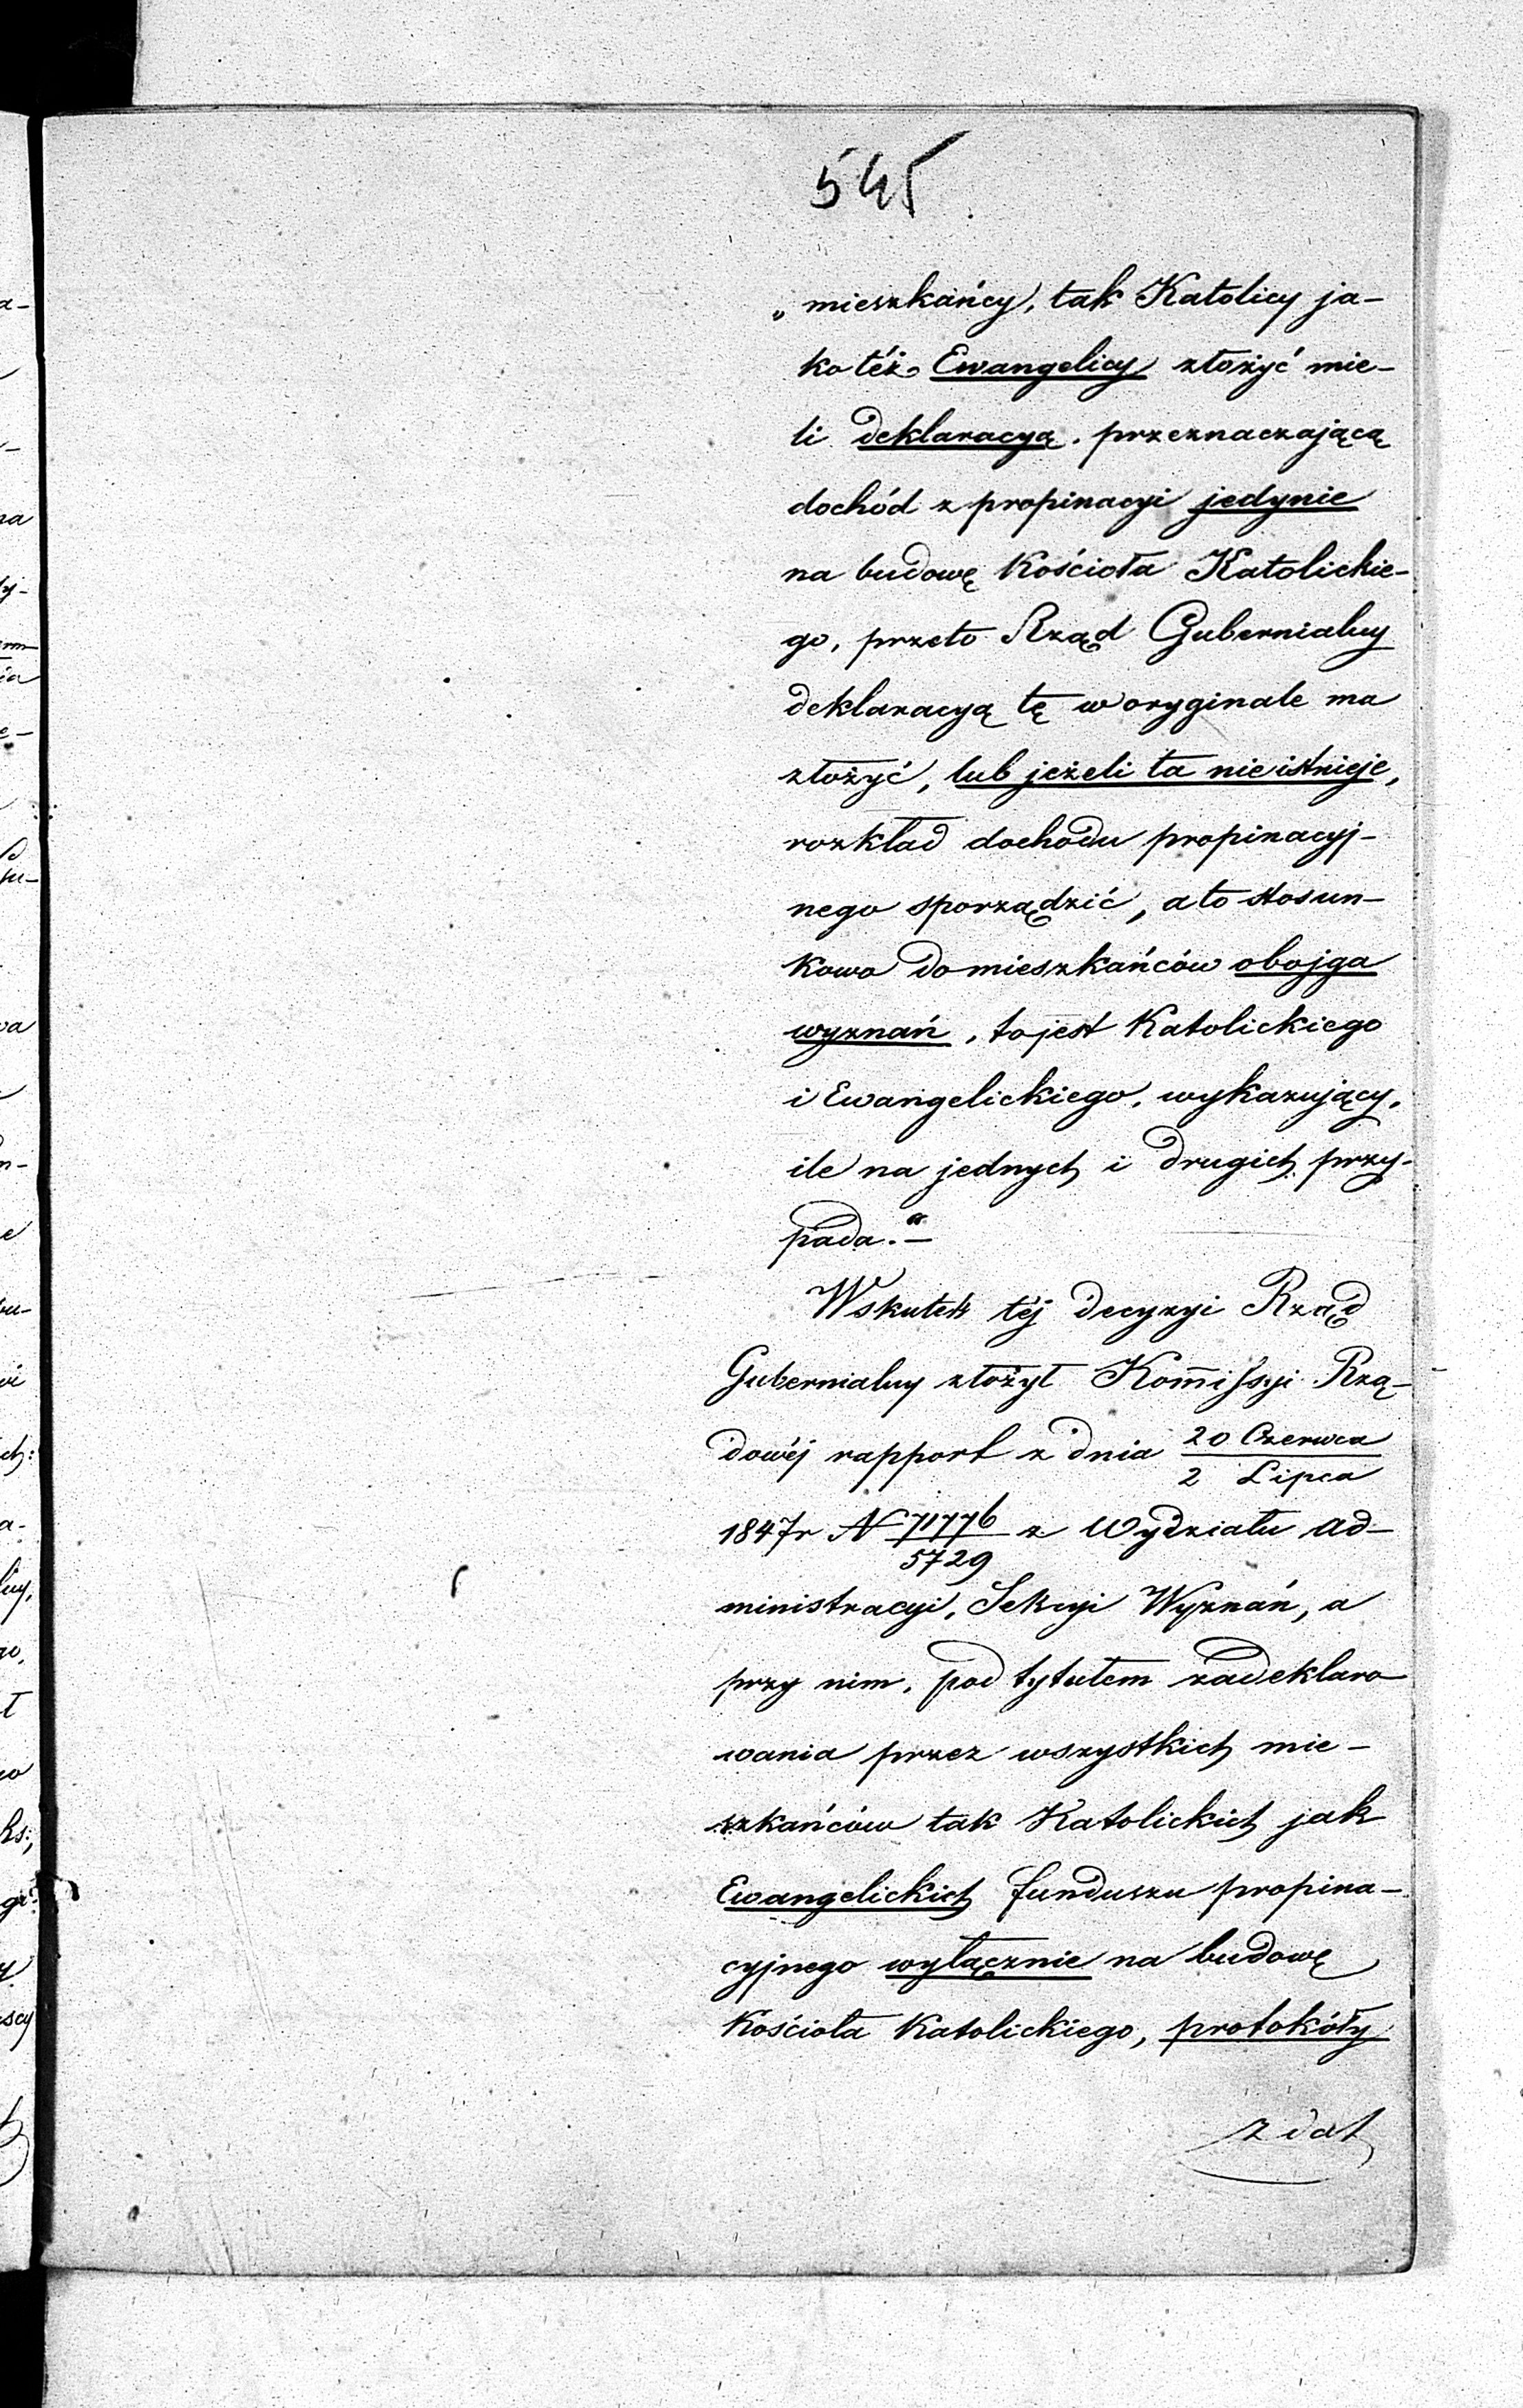 545
„mieszkańcy, tak Katolicy ja-
ko téż Ewangelicy złożyć mie-
li deklaracyą, przeznaczającą
dochód z propinacyi jedynie
na budowę Kościoła Katolickie-
go, przeto Rząd Gubernialny
deklaracyą tę w oryginale ma
złożyć, lub jeżeli ta nie istnieje,
rozkład dochodu propinacyj-
nego sporządzić, a to stosun-
kowo do mieszkańców obojga
wyznań, to jest Katolickiego
i Ewangelickiego, wykazujący,
ile na jednych i drugich przy-
pada.“—
Wskutek téj decyzyi Rząd
Gubernialny złożył Kom̄issyi Rzą-
dowéj rapport z dnia 20 Czerwca
2 Lipca
1847r N 71776 z Wydziału Ad-
5729
ministracyi, Sekcyi Wyznań, a
przy nim, pod tytułem zadeklaro
wania przez wszystkich mie-
szkańców tak Katolickich jak
Ewangelickich funduszu propina-
cyjnego wyłącznie na budowę
Kościoła Katolickiego, protokóły
z dat